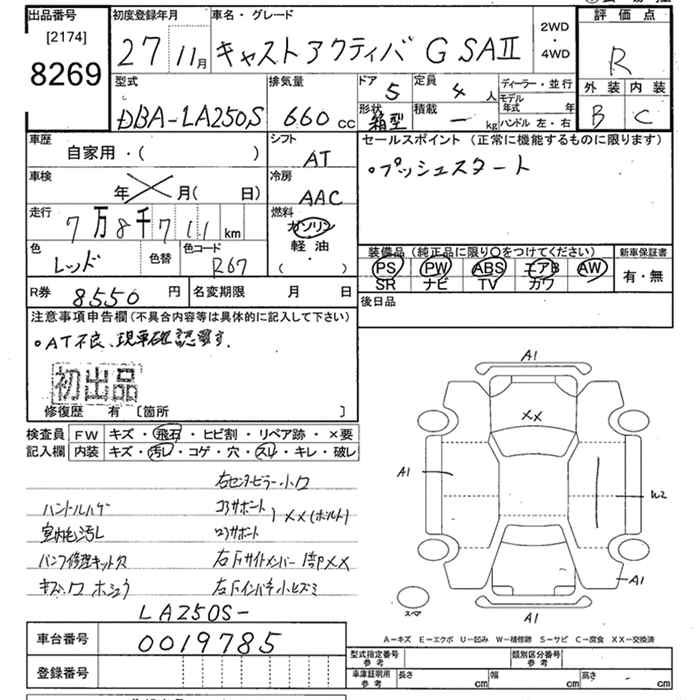 出品番号
[2174]
8269
初度登録年月
27 11月
車名・グレード
キャストアクティバ G SAⅡ
2WD・4WD
評価点
R
外装 内装
B C
型式
DBA-LA250S
排気量
660 cc
ドア 5
形状 箱型
定員 4 人
積載 ー kg
ディーラー・並行
モデル年式 年
ハンドル 左・右
車歴
自家用・( )
シフト
AT
セールスポイント (正常に機能するものに限ります)
・プッシュスタート
車検
年 月( 日)
冷房
AAC
走行
7万8千711 km
燃料
ガソリン
軽油
・( )
色
レッド
色替
色コード
R67
装備品 (純正品に限り○をつけてください)
PS PW ABS エアB AW
SR ナビ TV カワ
新車保証書
有・無
R券 8550 円
名変期限 月 日
後日品
注意事項申告欄(不具合内容等は具体的に記入して下さい)
・AT不良、現車確認要す.
初出品
修復歴 有 [箇所 ]
検査員 FW キズ・飛石・ヒビ割・リペア跡・×要
記入欄 内装 キズ・汚レ・コゲ・穴・スレ・キレ・破レ
右センターピラー小ワ
ハンドルハゲ
コアサポート
XX(ボルト)
室内毛汚し
ラジサポート
パンク修理キット欠
右Fサイドメンバー XX
右Fインパネ小ヒズミ
LA250S-
車台番号 0019785
登録番号
A1
XX
A1
W2
A1
A1
スペア
A-キズ E-エクボ U-凹み W-補修跡 S-サビ C-腐食 XX-交換済
型式指定番号 参考
類別区分番号 参考
車庫証明用 参考
長さ cm
幅 cm
高さ cm